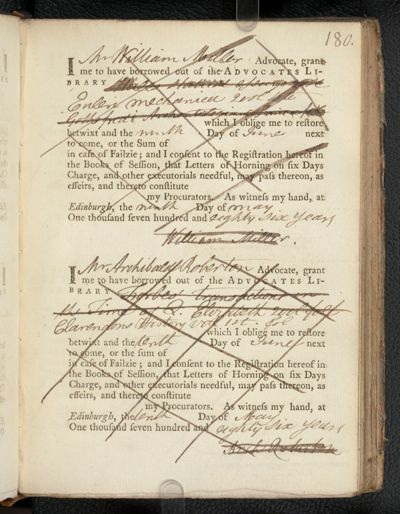 180.
I Mr William Miller Advocate, grant
me to have borrowed out of the ADVOCATES LI-
BRARY
Euleri mechanica 2 vol
which I oblige me to restore
betwixt and the ninth Day of June next
to come, or the Sum of
in case of Failzie; and I consent to the Registration hereof in
the Books of Session, that Letters of Horning on six Days
Charge, and other executorials needful, may pass thereon, as
effeirs, and thereto constitute
my Procurators. As witness my hand, at
Edinburgh, the ninth Day of may
One thousand seven hundred and eighty six years
William Miller.
I Mr Archibald Roberton Advocate, grant
me to have borrowed out of the ADVOCATES LI-
BRARY Forbes's transactions in
the Time of Q. Elizabeth
Clarendons History
which I oblige me to restore
betwixt and the tenth Day of June next
to come, or the sum of
in case of Failzie; and I consent to the Registration hereof in
the Books of Session, that Letters of Horning on six Days
Charge, and other executorials needful, may pass thereon, as
effeirs, and thereto constitute
my Procurators. As witness my hand, at
Edinburgh, the tenth Day of May
One thousand seven hundred and eighty six years
Arch Roberton